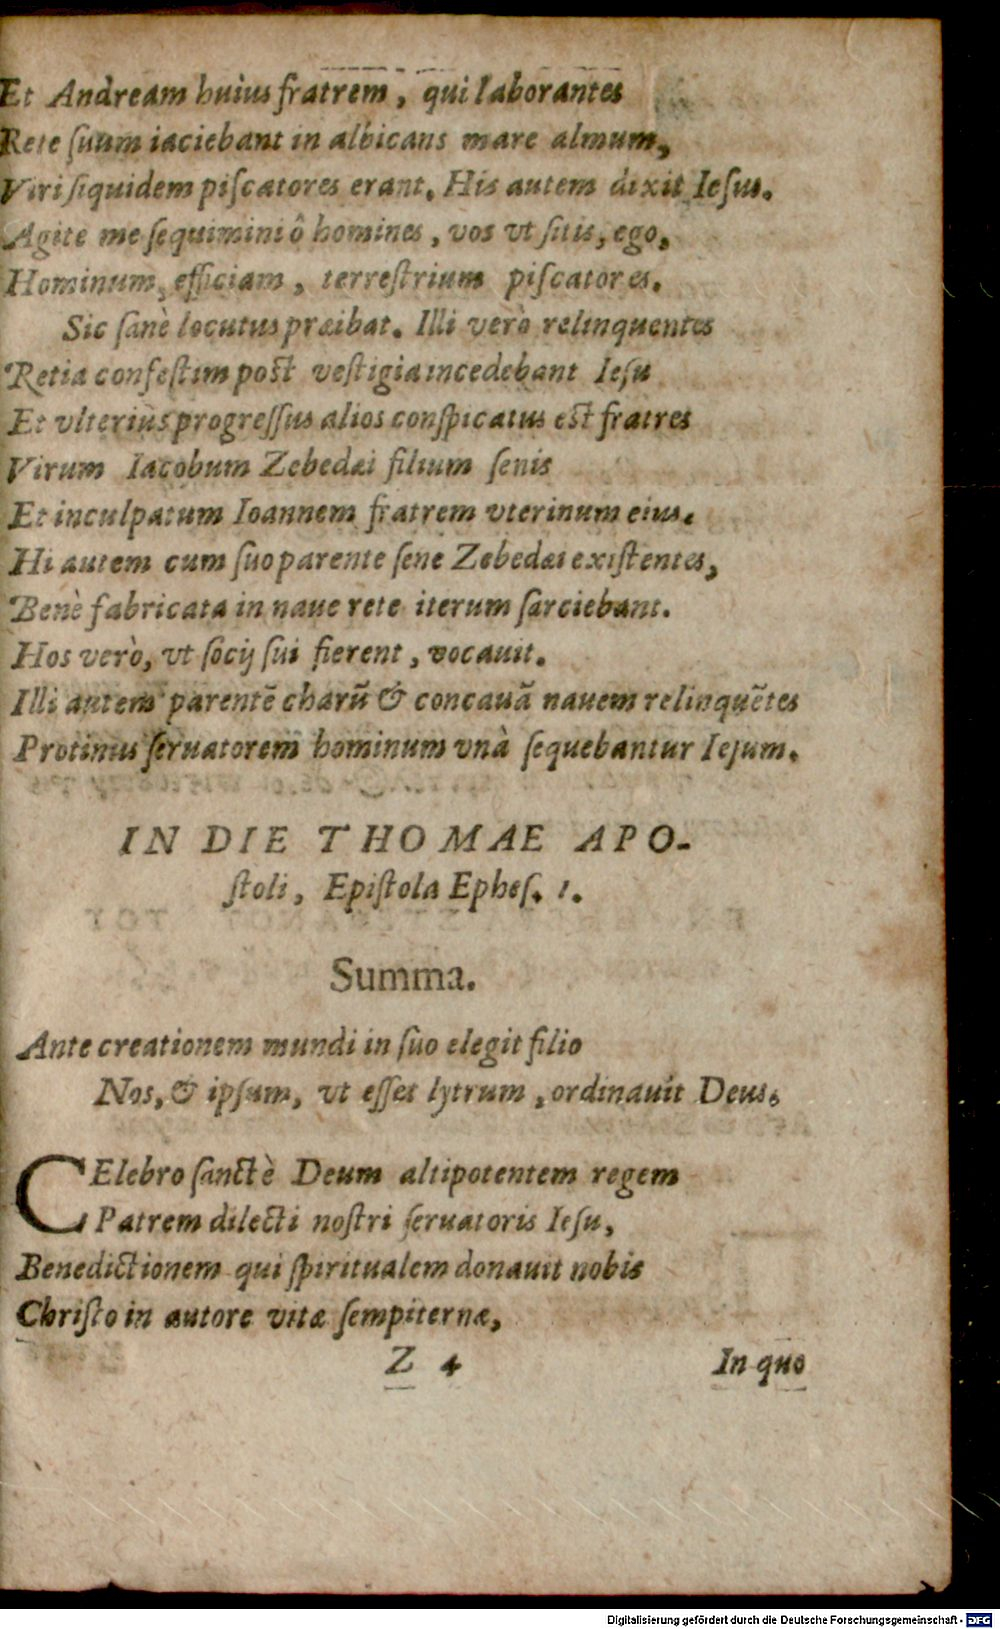 Et Andream huius fratrem, qui laborantes
Rete ſuum iaciebant in albicans mare almum,
Viri ſiquidem piſcatores erant. His autem dixit Ieſus.
Agite me ſequimini ô homines, vos vt ſitis, ego,
Hominum, efficiam, terreſtrium piſcatores.
Sic ſanè locutus præibat. Illi verò relinquentes
Retia confeſtim poſt veſtigia incedebant Ieſu
Et vlteriùs progreſſus alios conſpicatus eſt fratres
Virum Iacobum Zebedæi filium ſenis
Et inculpatum Ioannem fratrem vterinum eius.
Hi autem cum ſuo parente ſene Zebedæi exiſtentes,
Benè fabricata in naue rete iterum ſarciebant.
Hos verò, vt ſocij ſui fierent, vocauit.
Illi autem parentẽ charũ & concauã nauem relinquẽtes
Protinus ſeruatorem hominum vnà ſequebantur Ieſum.
IN DIE THOMAE APO-
ſtoli, Epiſtola Epheſ. 1.
Summa.
Ante creationem mundi in ſuo elegit filio
Nos, & ipſum, vt eſſet lytrum, ordinauit Deus.
CElebro ſanctè Deum altipotentem regem
Patrem dilecti noſtri ſeruatoris Ieſu,
Benedictionem qui ſpiritualem donauit nobis
Chriſto in autore vitæ ſempiternæ,
Z 4 In quo
Digitalisierung gefördert durch die Deutsche Forschungsgemeinschaft - DFG